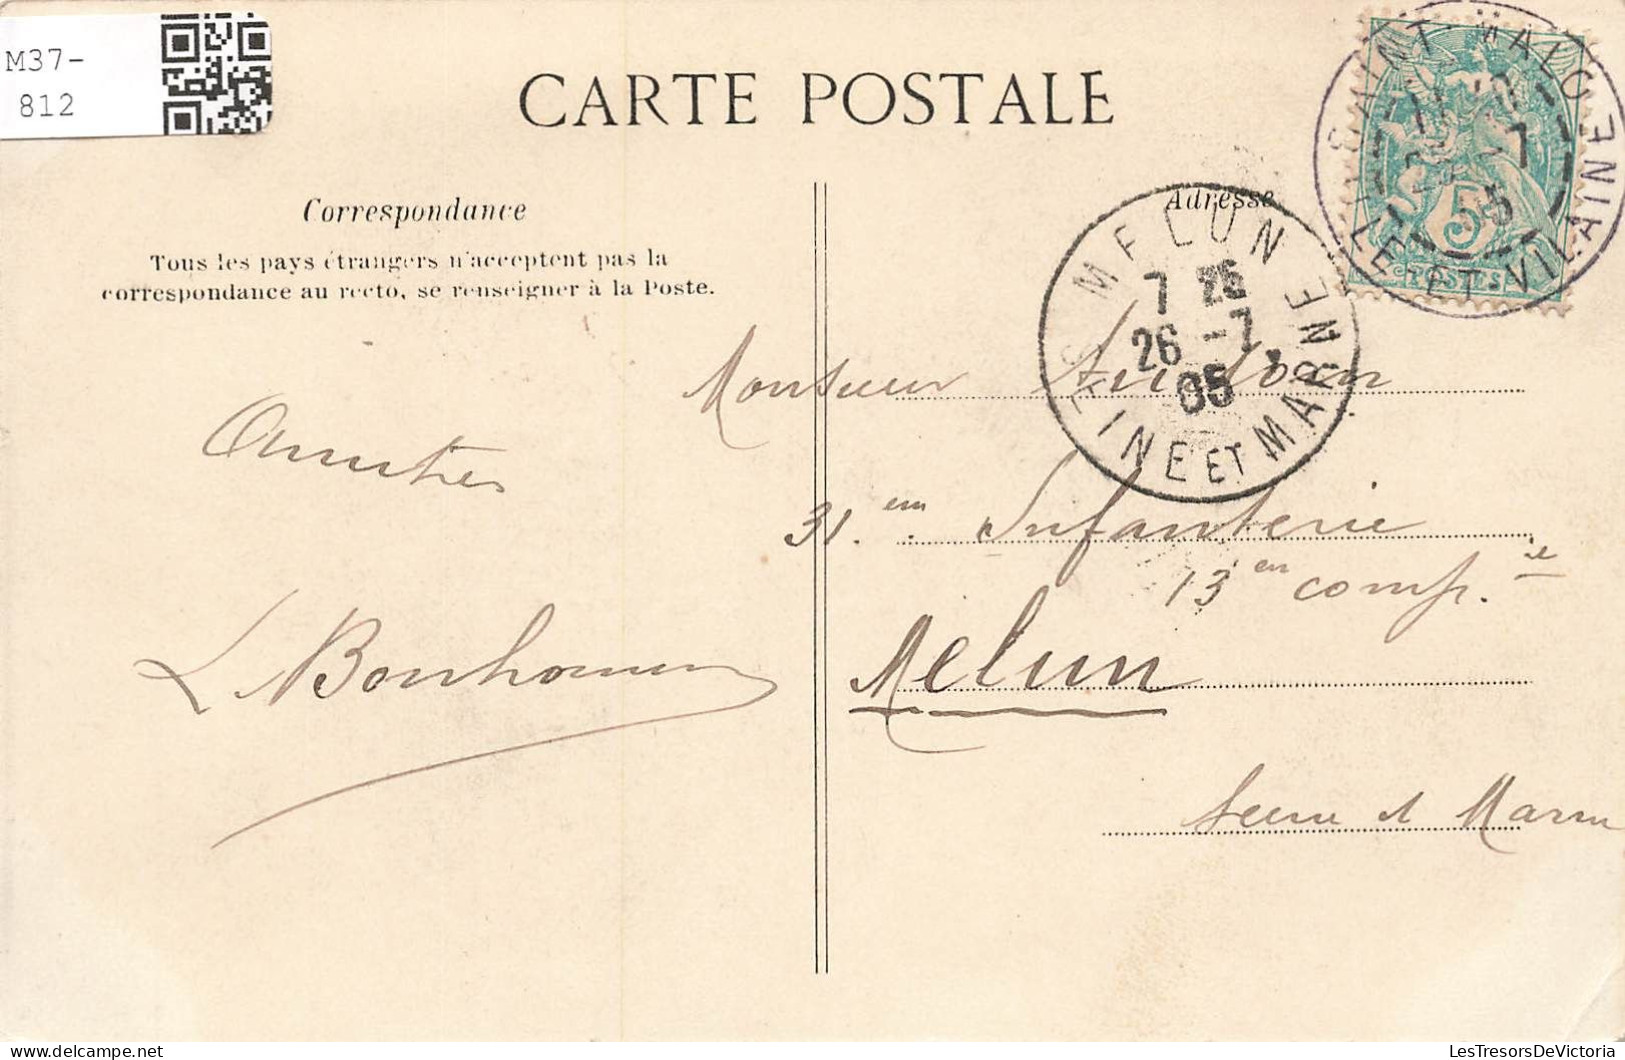 M37-
812
CARTE POSTALE
Correspondance
Tous les pays étrangers n'acceptent pas la
correspondance au recto, se renseigner à la Poste.
Adresse
SAINT-MALO
ILLE-ET-VILAINE
05
5c POSTES
MELUN
7 26
26 -7
05
SEINE ET MARNE
Monsieur
Amitiés
31.em Infanterie
13 em comp.ie
L Bonhomme
Melun
Seine et Marne
LesTresorsDeVictoria